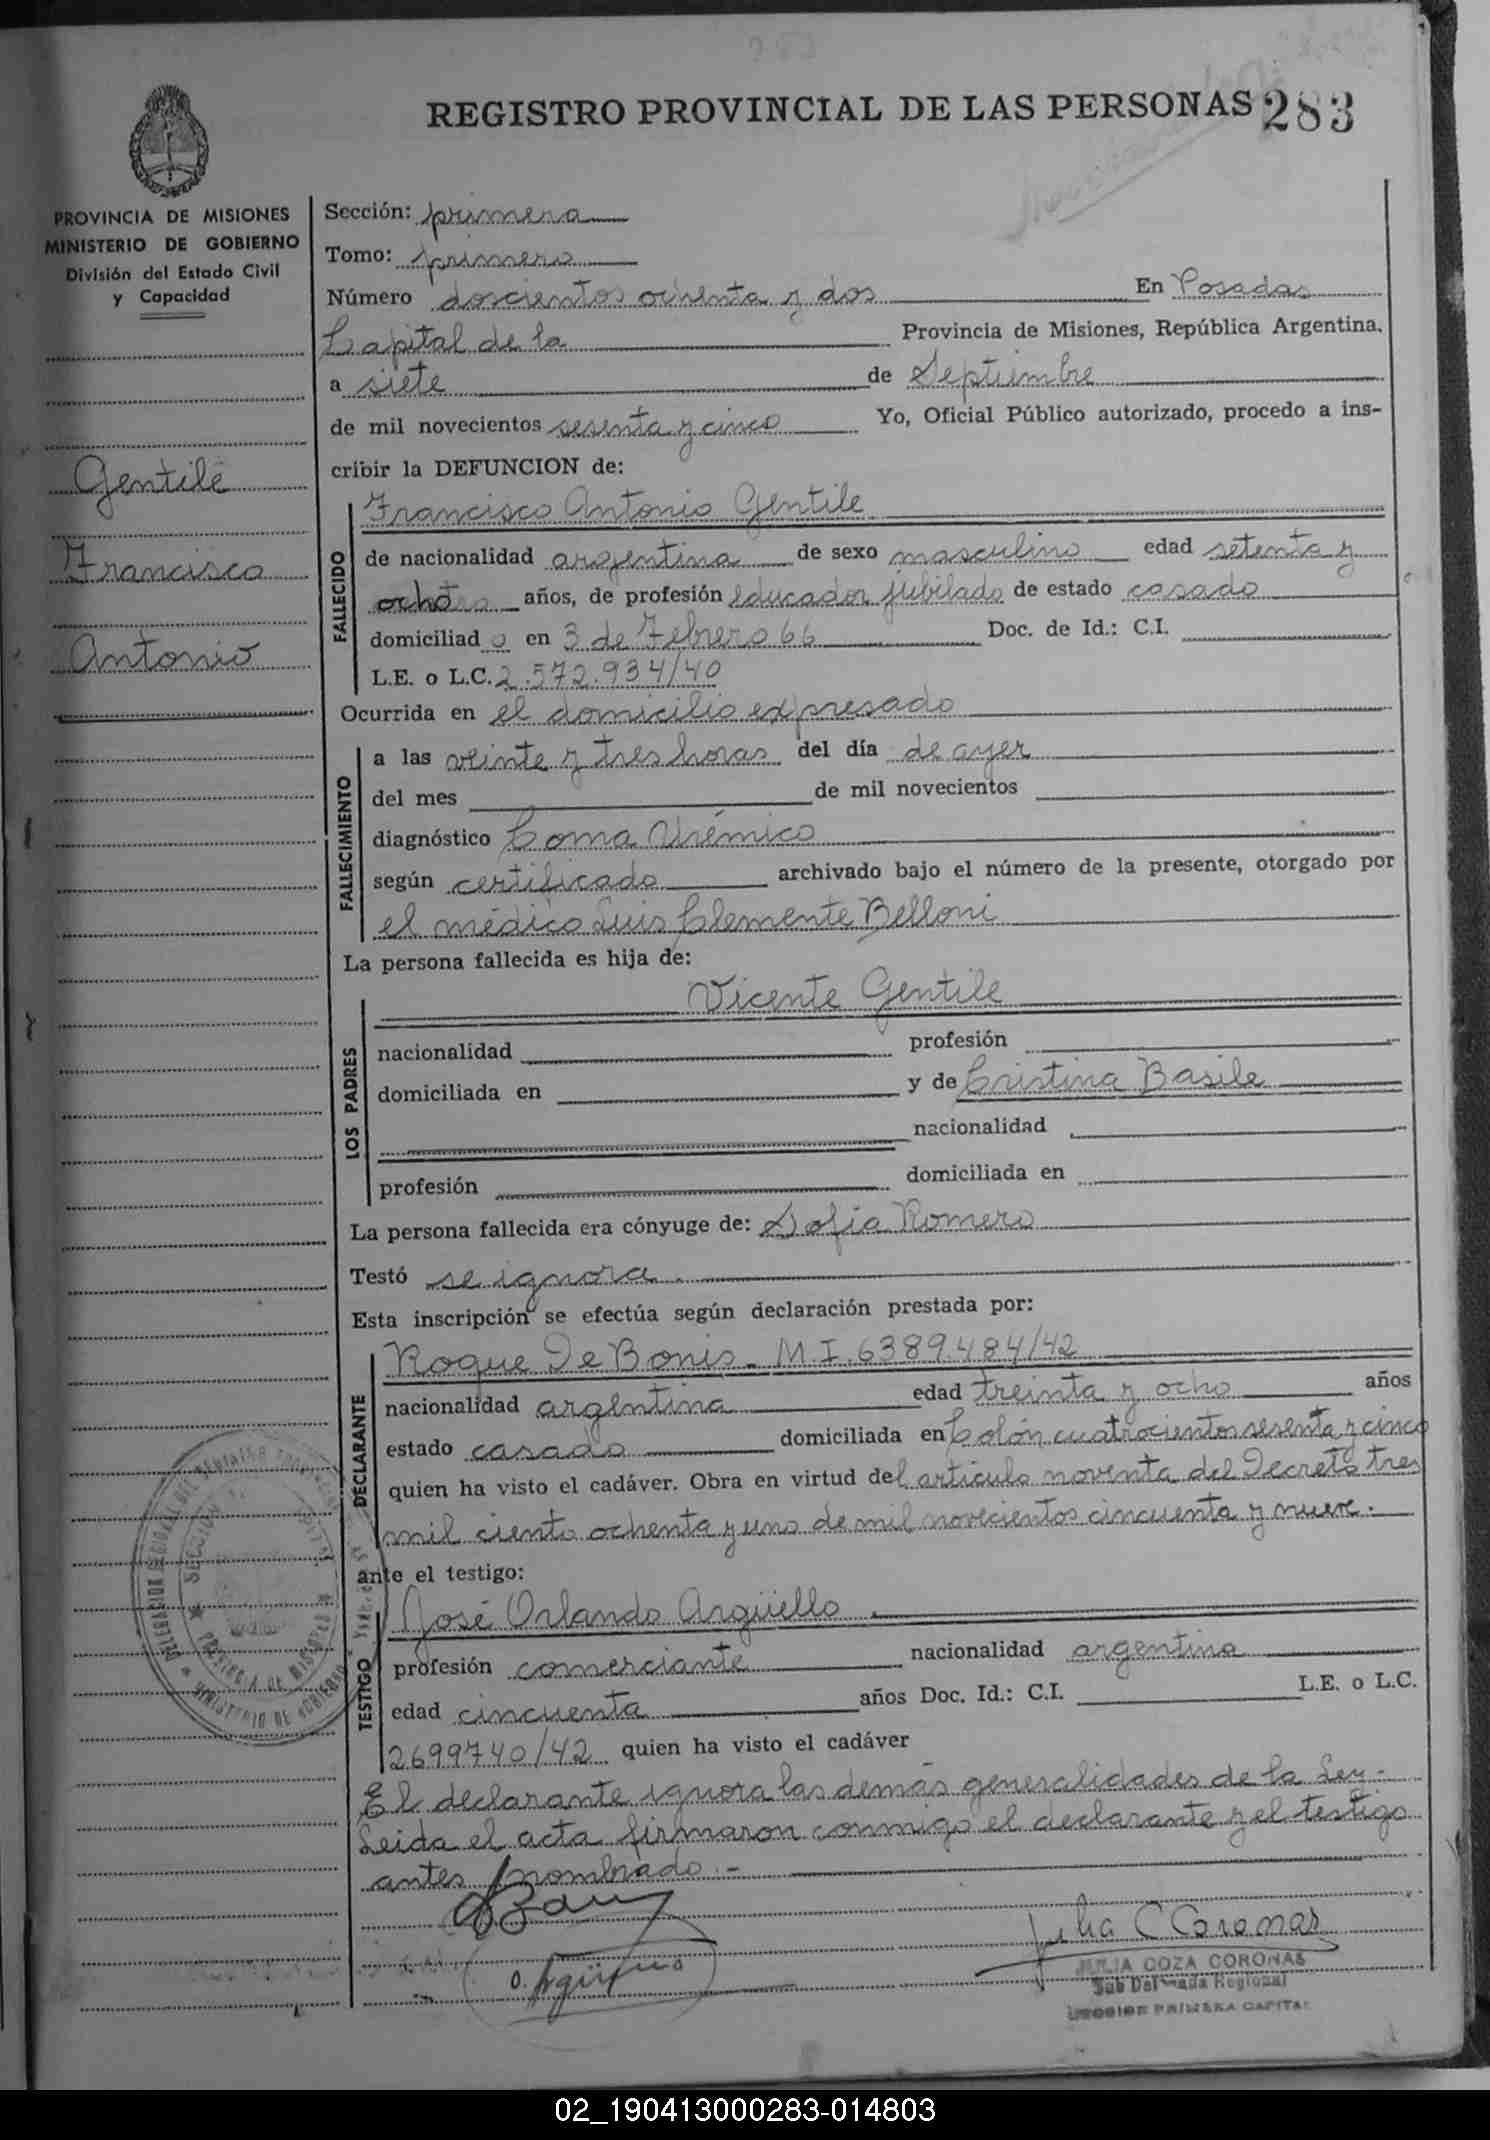 REGISTRO PROVINCIAL DE LAS PERSONAS 283
PROVINCIA DE MISIONES
MINISTERIO DE GOBIERNO
División del Estado Civil
y Capacidad
Gentile
Francisco
Antonio
Sección: primera
Tomo: primero
Número doscientos ochenta y dos En Posadas
Capital de la Provincia de Misiones, República Argentina,
a siete de Septiembre
de mil novecientos sesenta y cinco Yo, Oficial Público autorizado, procedo a ins-
cribir la DEFUNCION de:
FALLECIDO
Francisco Antonio Gentile
de nacionalidad argentina de sexo masculino edad setenta y
ocho años, de profesión educador jubilado de estado casado
domiciliad o en 3 de Febrero 66 Doc. de Id.: C.I.
L.E. o L.C. 2.572.934/40
Ocurrida en el domicilio expresado
FALLECIMIENTO
a las veinte y tres horas del día de ayer
del mes de mil novecientos
diagnóstico Coma Urémico
según certificado archivado bajo el número de la presente, otorgado por
el médico Luis Clemente Belloni
La persona fallecida es hija de:
LOS PADRES
Vicente Gentile
nacionalidad profesión
domiciliada en y de Cristina Basile
nacionalidad
profesión domiciliada en
La persona fallecida era cónyuge de: Sofia Romero
Testó se ignora.
Esta inscripción se efectúa según declaración prestada por:
DECLARANTE
Roque De Bonis - M.I. 6389.484/42
nacionalidad argentina edad treinta y ocho años
estado casado domiciliada en Colón cuatrocientos sesenta y cinco
quien ha visto el cadáver. Obra en virtud del artículo noventa del Decreto tres
mil ciento ochenta y uno de mil novecientos cincuenta y nueve.
ante el testigo:
TESTIGO
José Orlando Argüello
profesión comerciante nacionalidad argentina
edad cincuenta años Doc. Id.: C.I. L.E. o L.C.
2699740/42 quien ha visto el cadáver
El declarante ignora las demás generalidades de la Ley -
Leida el acta firmaron conmigo el declarante y el testigo
antes nombrado.-
Julia C Coronas
JULIA COZA CORONAS
Sub Delegada Regional
SECCION PRIMERA CAPITAL
SECCION
PROVINCIA DE MISIONES
MINISTERIO DE GOBIERNO
02_190413000283-014803